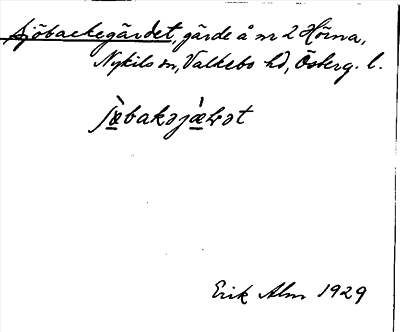 Sjöbackegärdet, gärde å nr 2 Hörna,
Nykils sn, Valkebo hd, Österg. l.
Erik Alm 1929